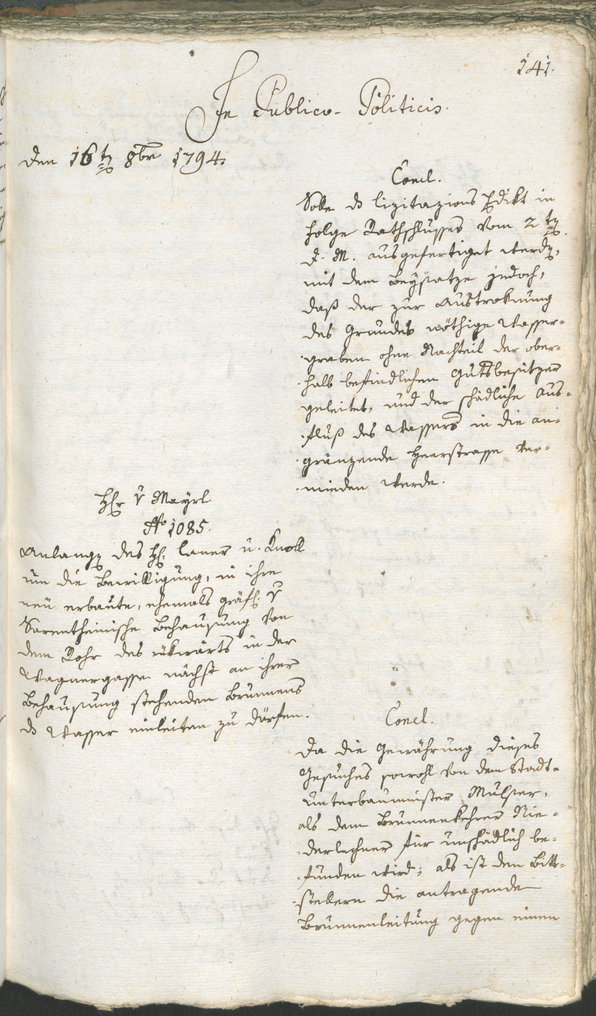 141.
In Publico-Politicis.
den 16t 8br 1794.
Concl.
Solle ds lizitazions Edikt in
folge Rathschlusses vom 2t
d. M. ausgefertiget werden,
mit dem Beysatze jedoch,
daß der zur Austroknung
des Grundes nöthige Wasser-
graben ohne Nachteil der ober-
halb befindlichen Gutsbesitzer
geleitet, und der schädliche Aus-
fluß des Wassers in die an-
gränzende Heerstrasse ver-
mieden werde.
Hr v Mayrl
No 1085.
Anlangen des H. Laner u. Knoll
um die Bewilligung, in ihre
neu erbaute, ehemals gräfl. v
Sarentheinische Behausung von
dem Rohr des rükwärts in der
Wagnergasse nächst an ihrer
Behausung stehenden Brunnens
ds Wasser einleiten zu dörfen.
Concl.
Da die Gewährung dieses
Gesuches sowohl von dem Stadt-
unterbaumeister Mulser,
als dem Brunnenkehrer Nie-
derlechner für unschädlich be-
funden wird; als ist dem Bitt-
stellern die antragende
Brunnenleitung gegen einen